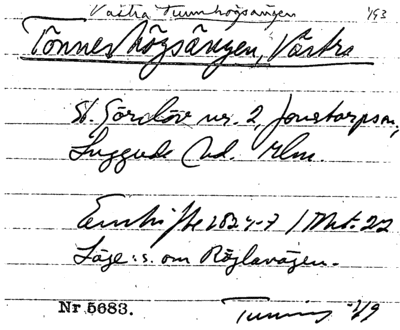 Västra Tunnhögsängen 1/93
Tönneshögsängen, Västra
St. Görslöv nr. 2, Jonstorpson,
Luggude hd. Mlm.
Enskifte 1824-7 / Akt. 22
Läge: s. om Röglavägen.
Nr 5683.